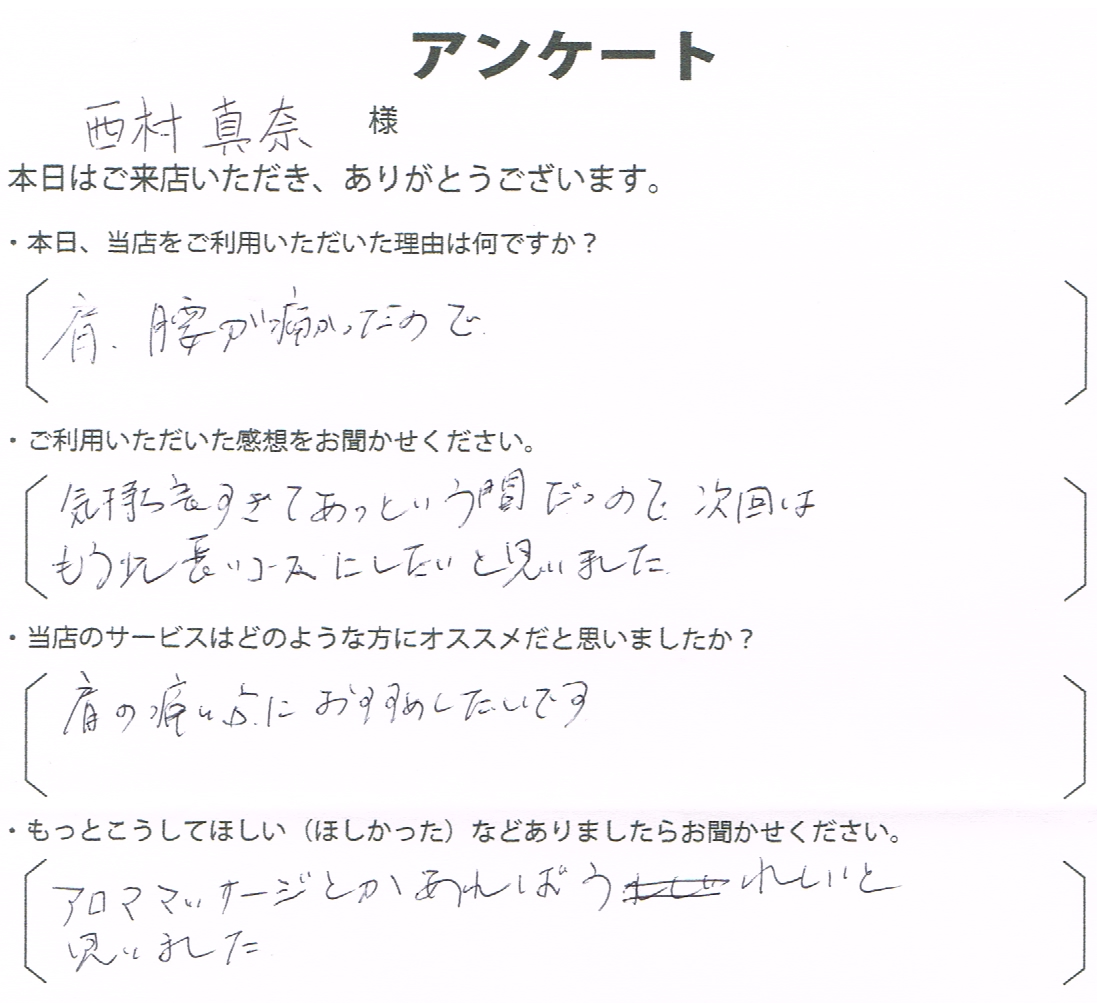 アンケート
西村 真奈 様
本日はご来店いただき、ありがとうございます。
・本日、当店をご利用いただいた理由は何ですか？
肩、腰が痛かったので
・ご利用いただいた感想をお聞かせください。
気持ち良すぎてあっという間だったので 次回は
もう少し長いコースにしたいと思いました
・当店のサービスはどのような方にオススメだと思いましたか？
肩の痛い方に おすすめしたいです
・もっとこうしてほしい（ほしかった）などありましたらお聞かせください。
アロママッサージとかあればうれしいと
思いました